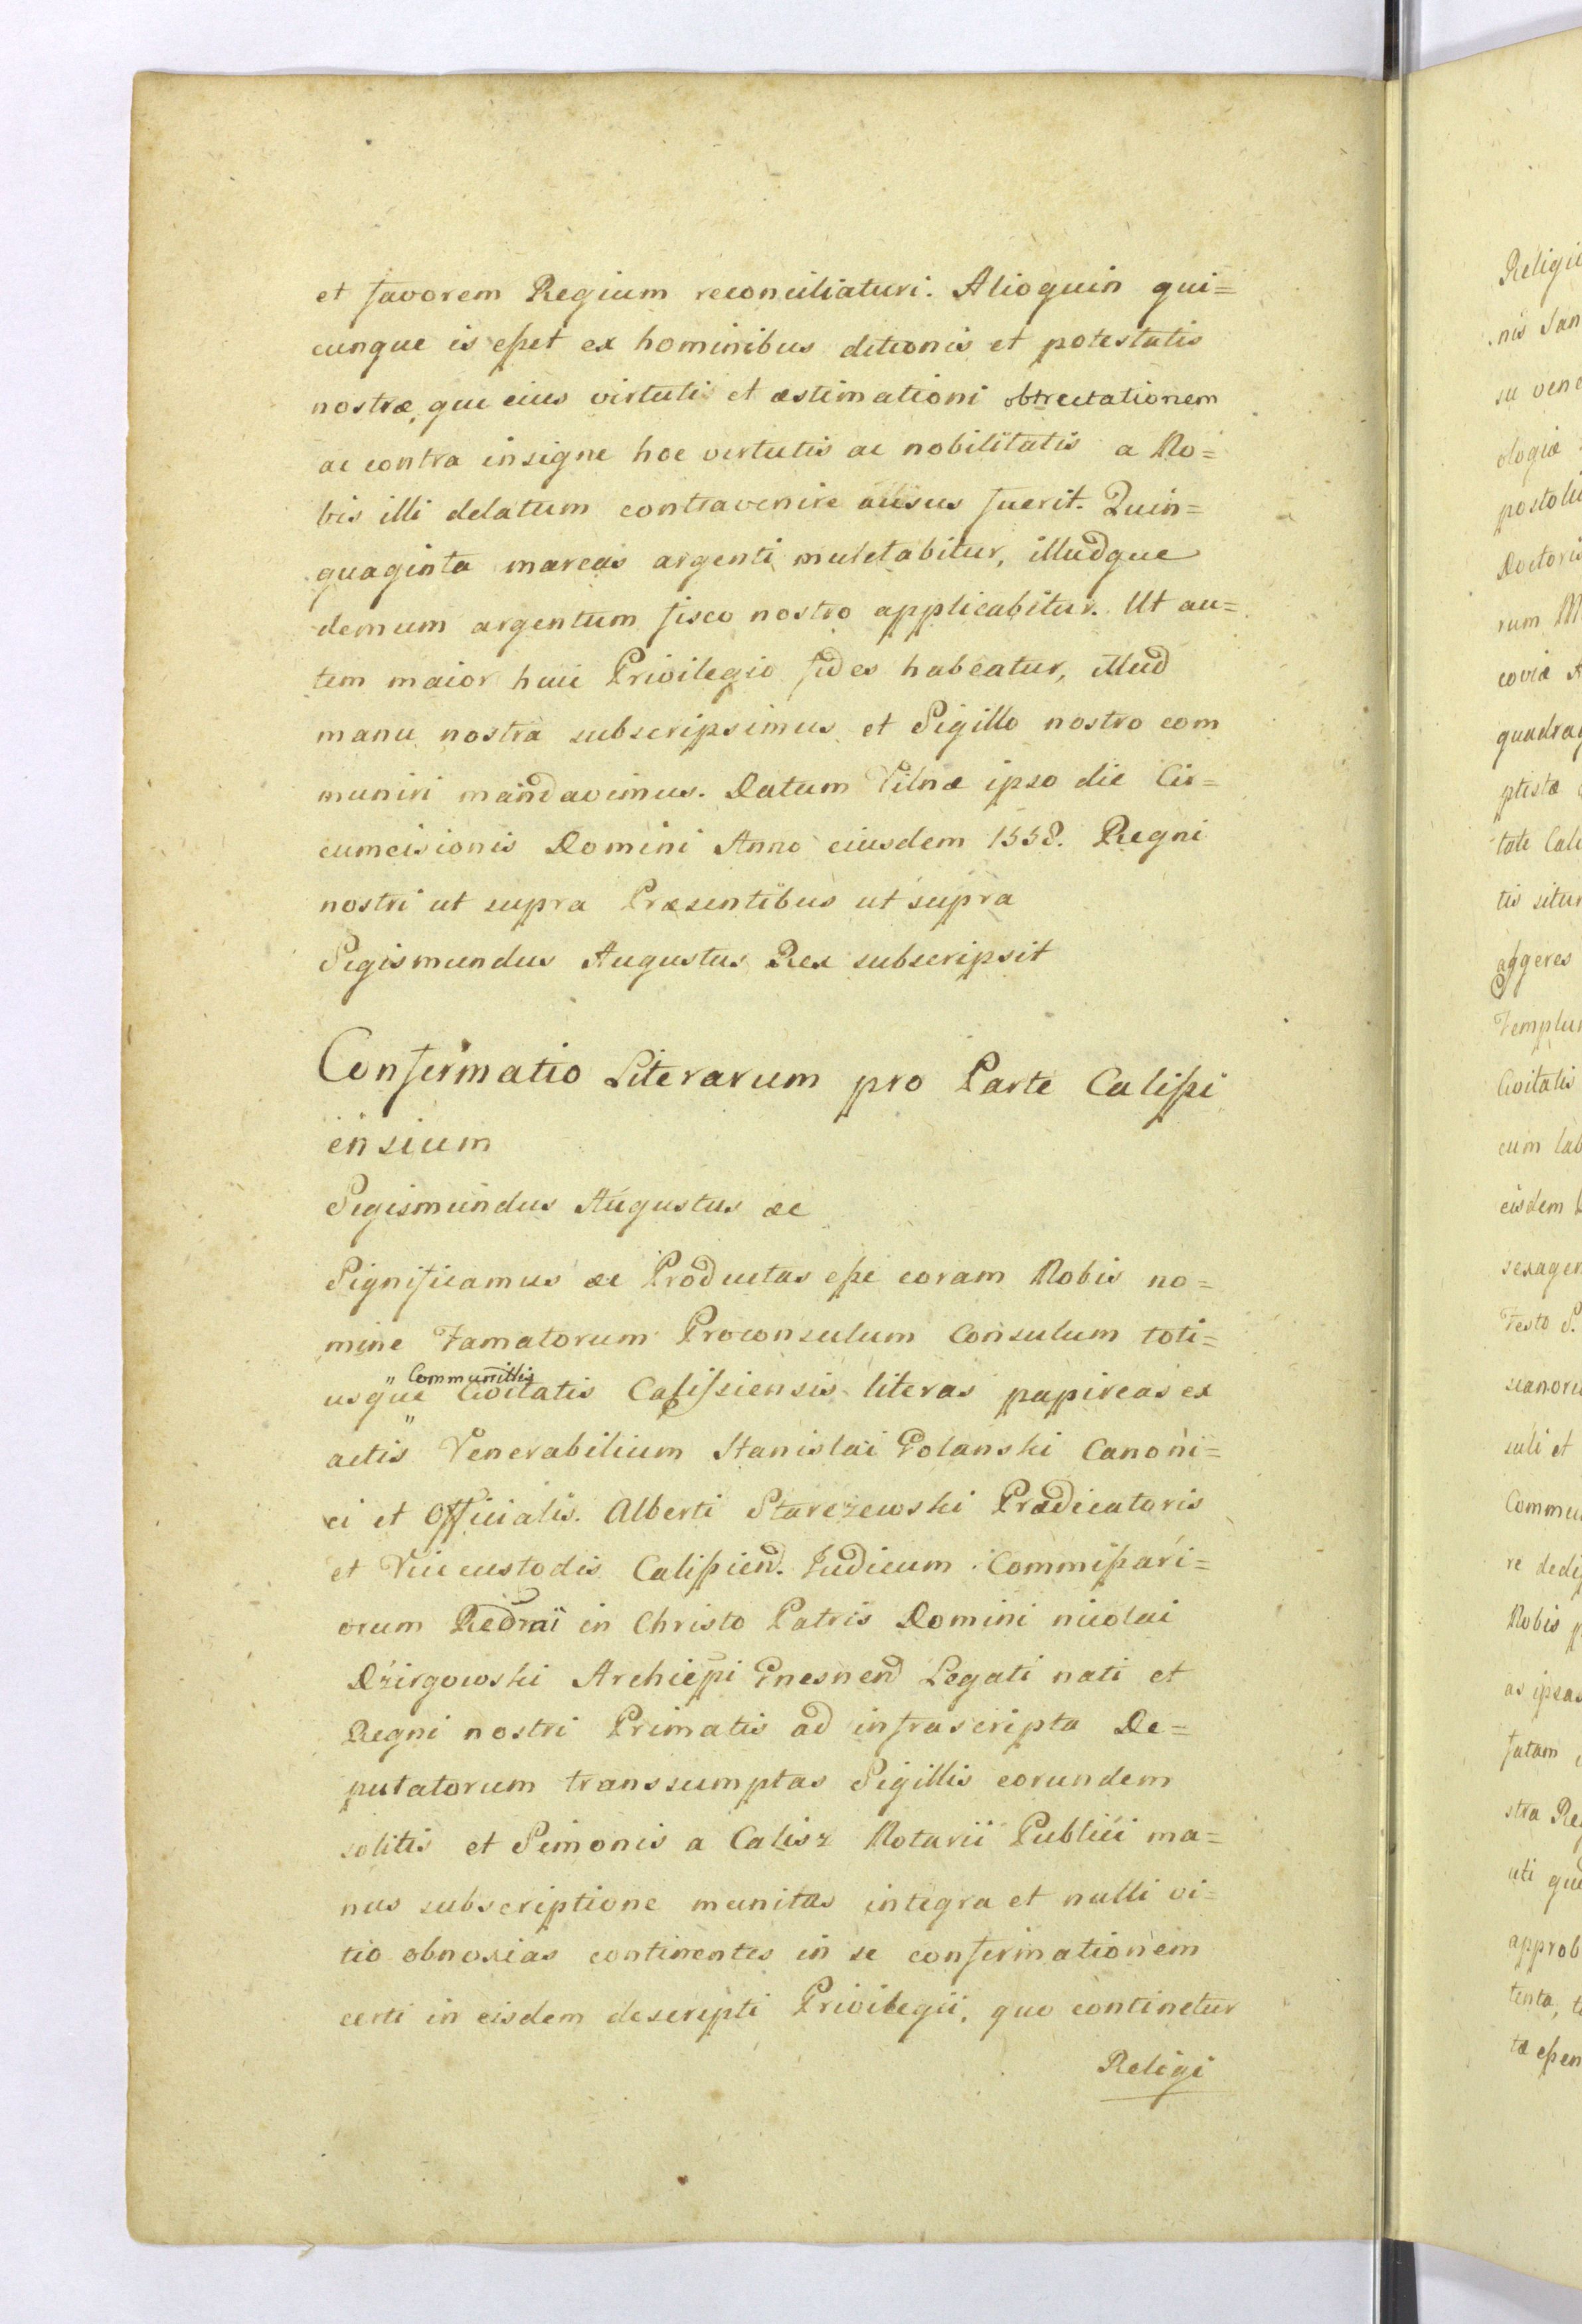 et favorem Regium reconciliaturi. Alioquin qui=
cunque is eßet ex hominibus ditionis et potestatis
nostræ, qui eius virtuti et æstimationi obtrectationem
ac contra insigne hoc virtutis ac nobilitatis a No=
bis illi delatum contravenire ausus fuerit. Quin=
quaginta marcas argenti mulctabitur, illudque
demum argentum fisco nostro applicabitur. Ut au=
tem maior huic Privilegio fides habeatur, illud
manu nostra subscripsimus et Sigillo nostro com
muniri mandavimus. Datum Vilnæ ipso die Cir=
cumcisionis Domini Anno eiusdem 1558. Regni
nostri ut supra Præsentibus ut supra
Sigismundus Augustus Rex subscripsit
Confirmatio Literarum pro Parte Calißi
ensium
Sigismundus Augustus æc
Significamus æc Productas eße coram Nobis no=
mine Famatorum Proconsulum Consulum toti=
" Communittis
usque Civitatis Calißiensis literas papireas ex
actis " Venerabilium Stanislai Golanski Canoni=
ci et Officialis. Alberti Starczewski Prædicatoris
et Vicecustodis Calißien. Iudicum Commißari=
orum Redmi in Christo Patris Domini nicolai
Dzirgowski Archiepi Gnesnen Legati nati et
Regni nostri Primatis ad infrascripta De=
putatorum transsumptas Sigillis eorundem
solitis et Simonis a Calisz Notarii Publici ma=
nus subscriptione munitas integra et nulli vi=
tio obnoxias continentes in se confirmationem
certi in eisdem descripti Privilegii, quo continetur
Religi
Religi
nis San
su vene
ologiæ
postoli
Doctoris
rum M
coviæ A
quadrag
ptistæ
tate Cali
tis situ
aggeres
Templu
Civitatis
cum lab
eisdem
sexagen
Festo S.
culi et
Commu
re dedi
Nobis p
as ipsas
fatam
stra Re
uti qui
approb
tenta, t
tæ eßen